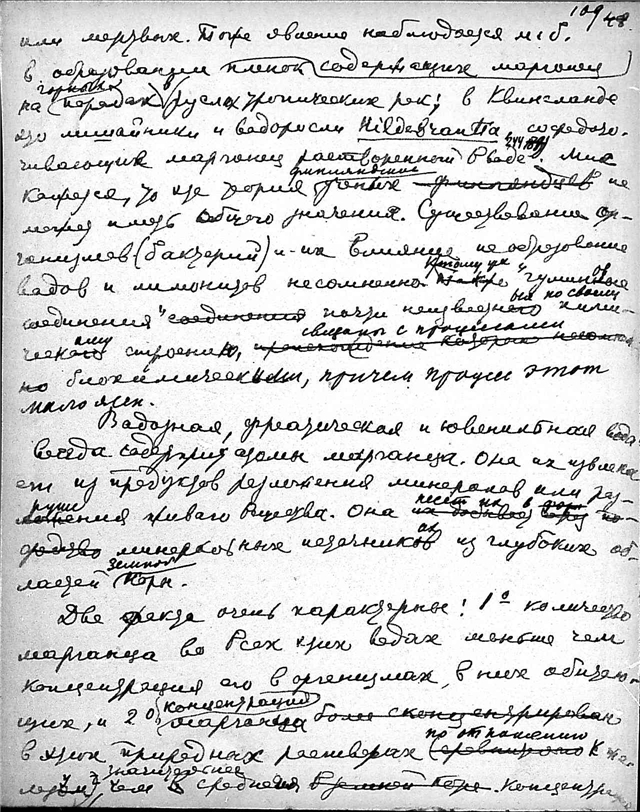 109 48.
или мертвых. Тоже явление наблюдается м. б.
в образовании пленок содержащих марганец
на горных породах русл тропических рек; в Квинсланде
это лишайники и водоросли Hildebrantia, сосредото-
чивающих марганец растворенный в воде. Мне
кажется, что эта теория финляндских ученых финляндцев не
может иметь общего значения. Существование ор-
ганизмов (бактерий) и их влияние на образование
вадов и лимонитов несомненно. К тому же и "гуминовые
соединения" соединения почти неизвестного по своему хими-
ческому строению, связаны с процессами происхождение которого несомнен-
но биохимическими, причем процесс этот
мало ясен.
Вадозная, фреатическая и ювенильная вода
всегда содержит атомы марганца. Она их извлека-
ет из продуктов разложения минералов или раз-
рушения живого вещества. Она несет их в форме по-
средство минеральных источников из глубоких об-
ластей земной коры.
Две факта очень характерные! 1º количество
марганца во всех этих водах меньше чем
концентрация его в организмах, в них обитаю-
щих, и 2º концентрация марганца более сконцентрирован
в этих природных растворах по отношению сравнительно к
чем значительнее в средней земной коре. Концентра